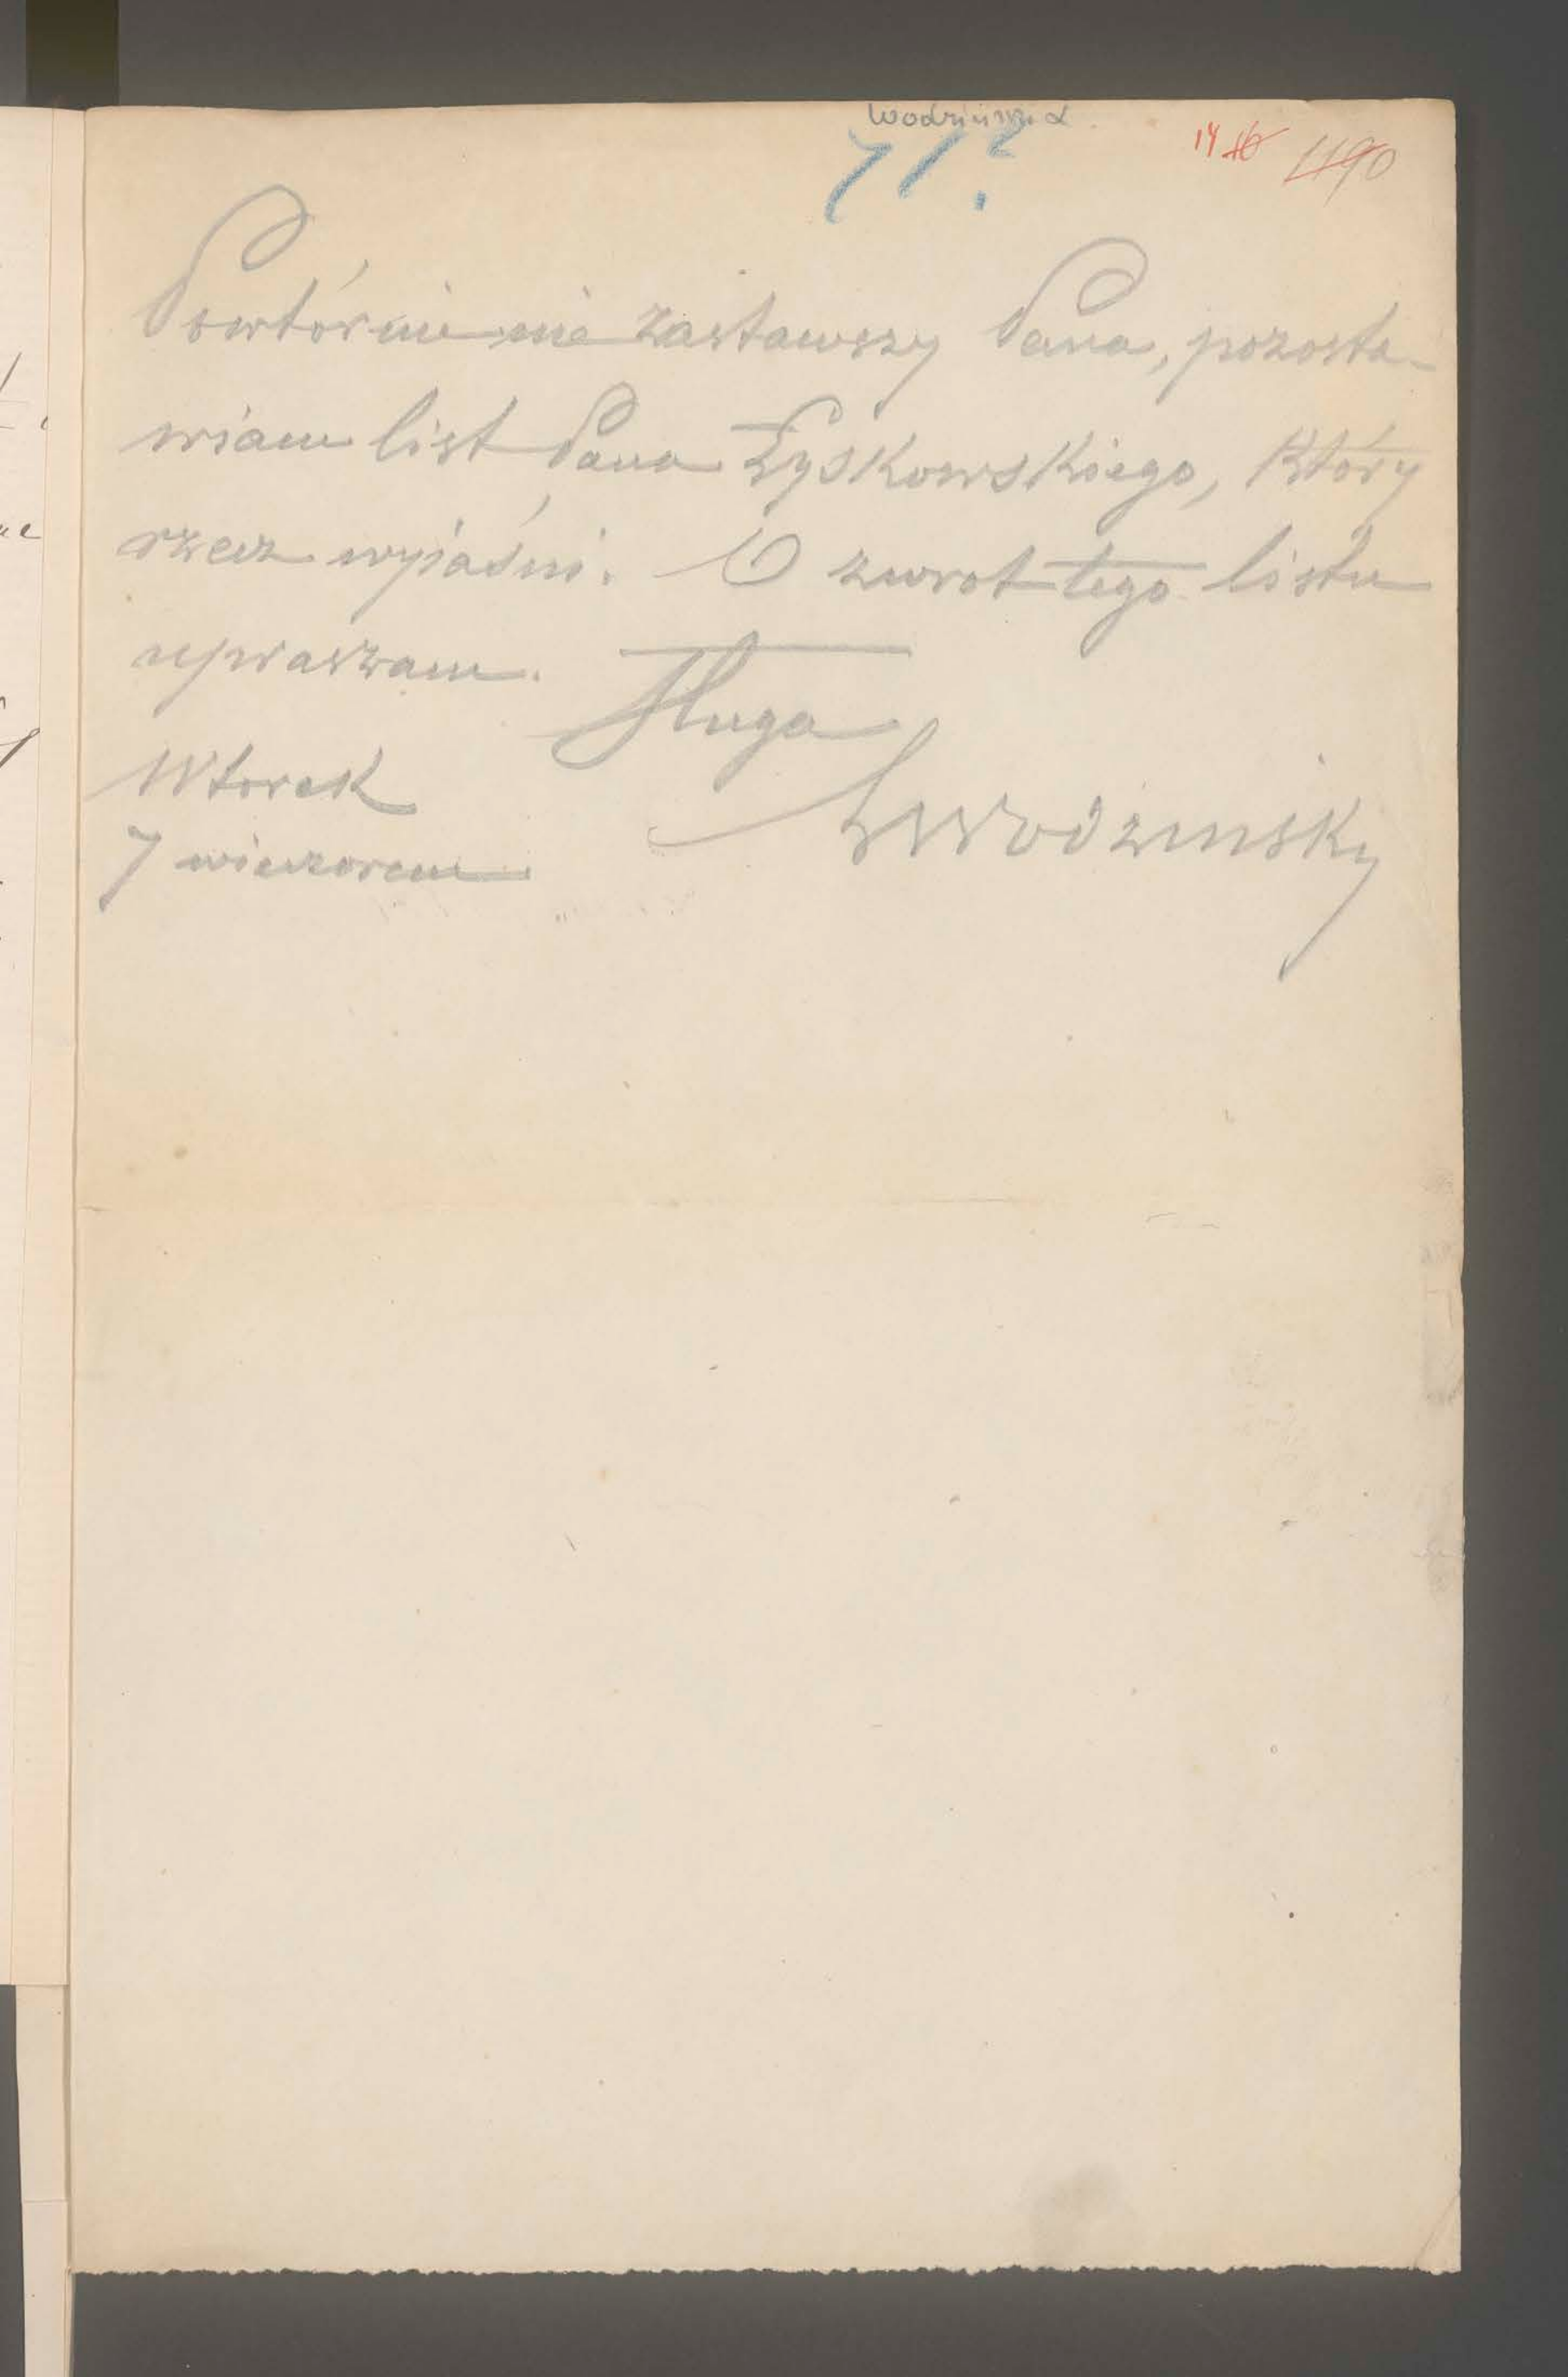 71?
14 16 1190
Powtórnie nie zastawszy Pana, pozosta-
wiam list Pana Łyskowskiego, który
rzecz wyjaśni. O zwrot tego listu
upraszam.
Sługa
Wtorek
LWodzinsky
7 wieczorem